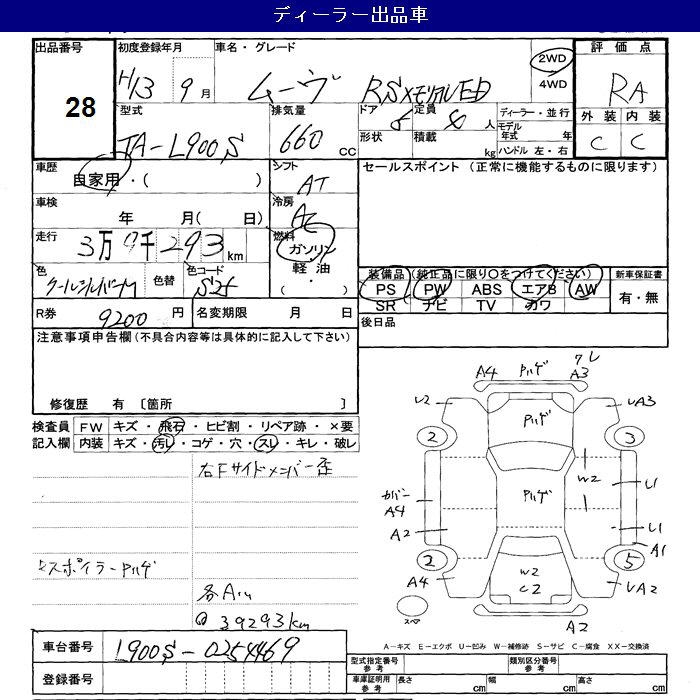 ディーラー出品車
出品番号 28
初度登録年月 H13 9月
車名・グレード ムーヴ RSメモリアルED
2WD 4WD
評価点 RA
外装 C 内装 C
型式 TA-L900S
排気量 660 cc
ドア 5
定員 4人
形状
積載 kg
ディーラー・並行
モデル年式 年
ハンドル 左・右
車歴 自家用・( )
シフト AT
セールスポイント (正常に機能するものに限ります)
車検 年 月( 日)
冷房 AC
走行 3万9千293km
燃料 ガソリン 軽油・( )
色 クールシルバーM
色替
色コード S25
装備品 (純正品に限り○をつけてください)
PS PW ABS エアB AW
SR ナビ TV カワ
新車保証書 有・無
R券 9200円
名変期限 月 日
後日品
注意事項申告欄(不具合内容等は具体的に記入して下さい)
修復歴 有 〔箇所 〕
検査員記入欄
FW キズ・飛石・ヒビ割・リペア跡・×要
内装 キズ・汚レ・コゲ・穴・スレ・キレ・破レ
右Fサイドメンバー歪
スポイラーPハゲ
各Aハ
@ 39293km
A4 Pハゲ ワレ A3
U2 Pハゲ UA3
2 3
W2
カバー A4 Pハゲ U1
A2 U1
A1
2 5
A4 W2 C2 UA2
スペア A2
A-キズ E-エクボ U-凹み W-補修跡 S-サビ C-腐食 XX-交換済
車台番号 L900S-0254469
登録番号
型式指定番号 参考
類別区分番号 参考
車庫証明用 参考 長さ cm 幅 cm 高さ cm